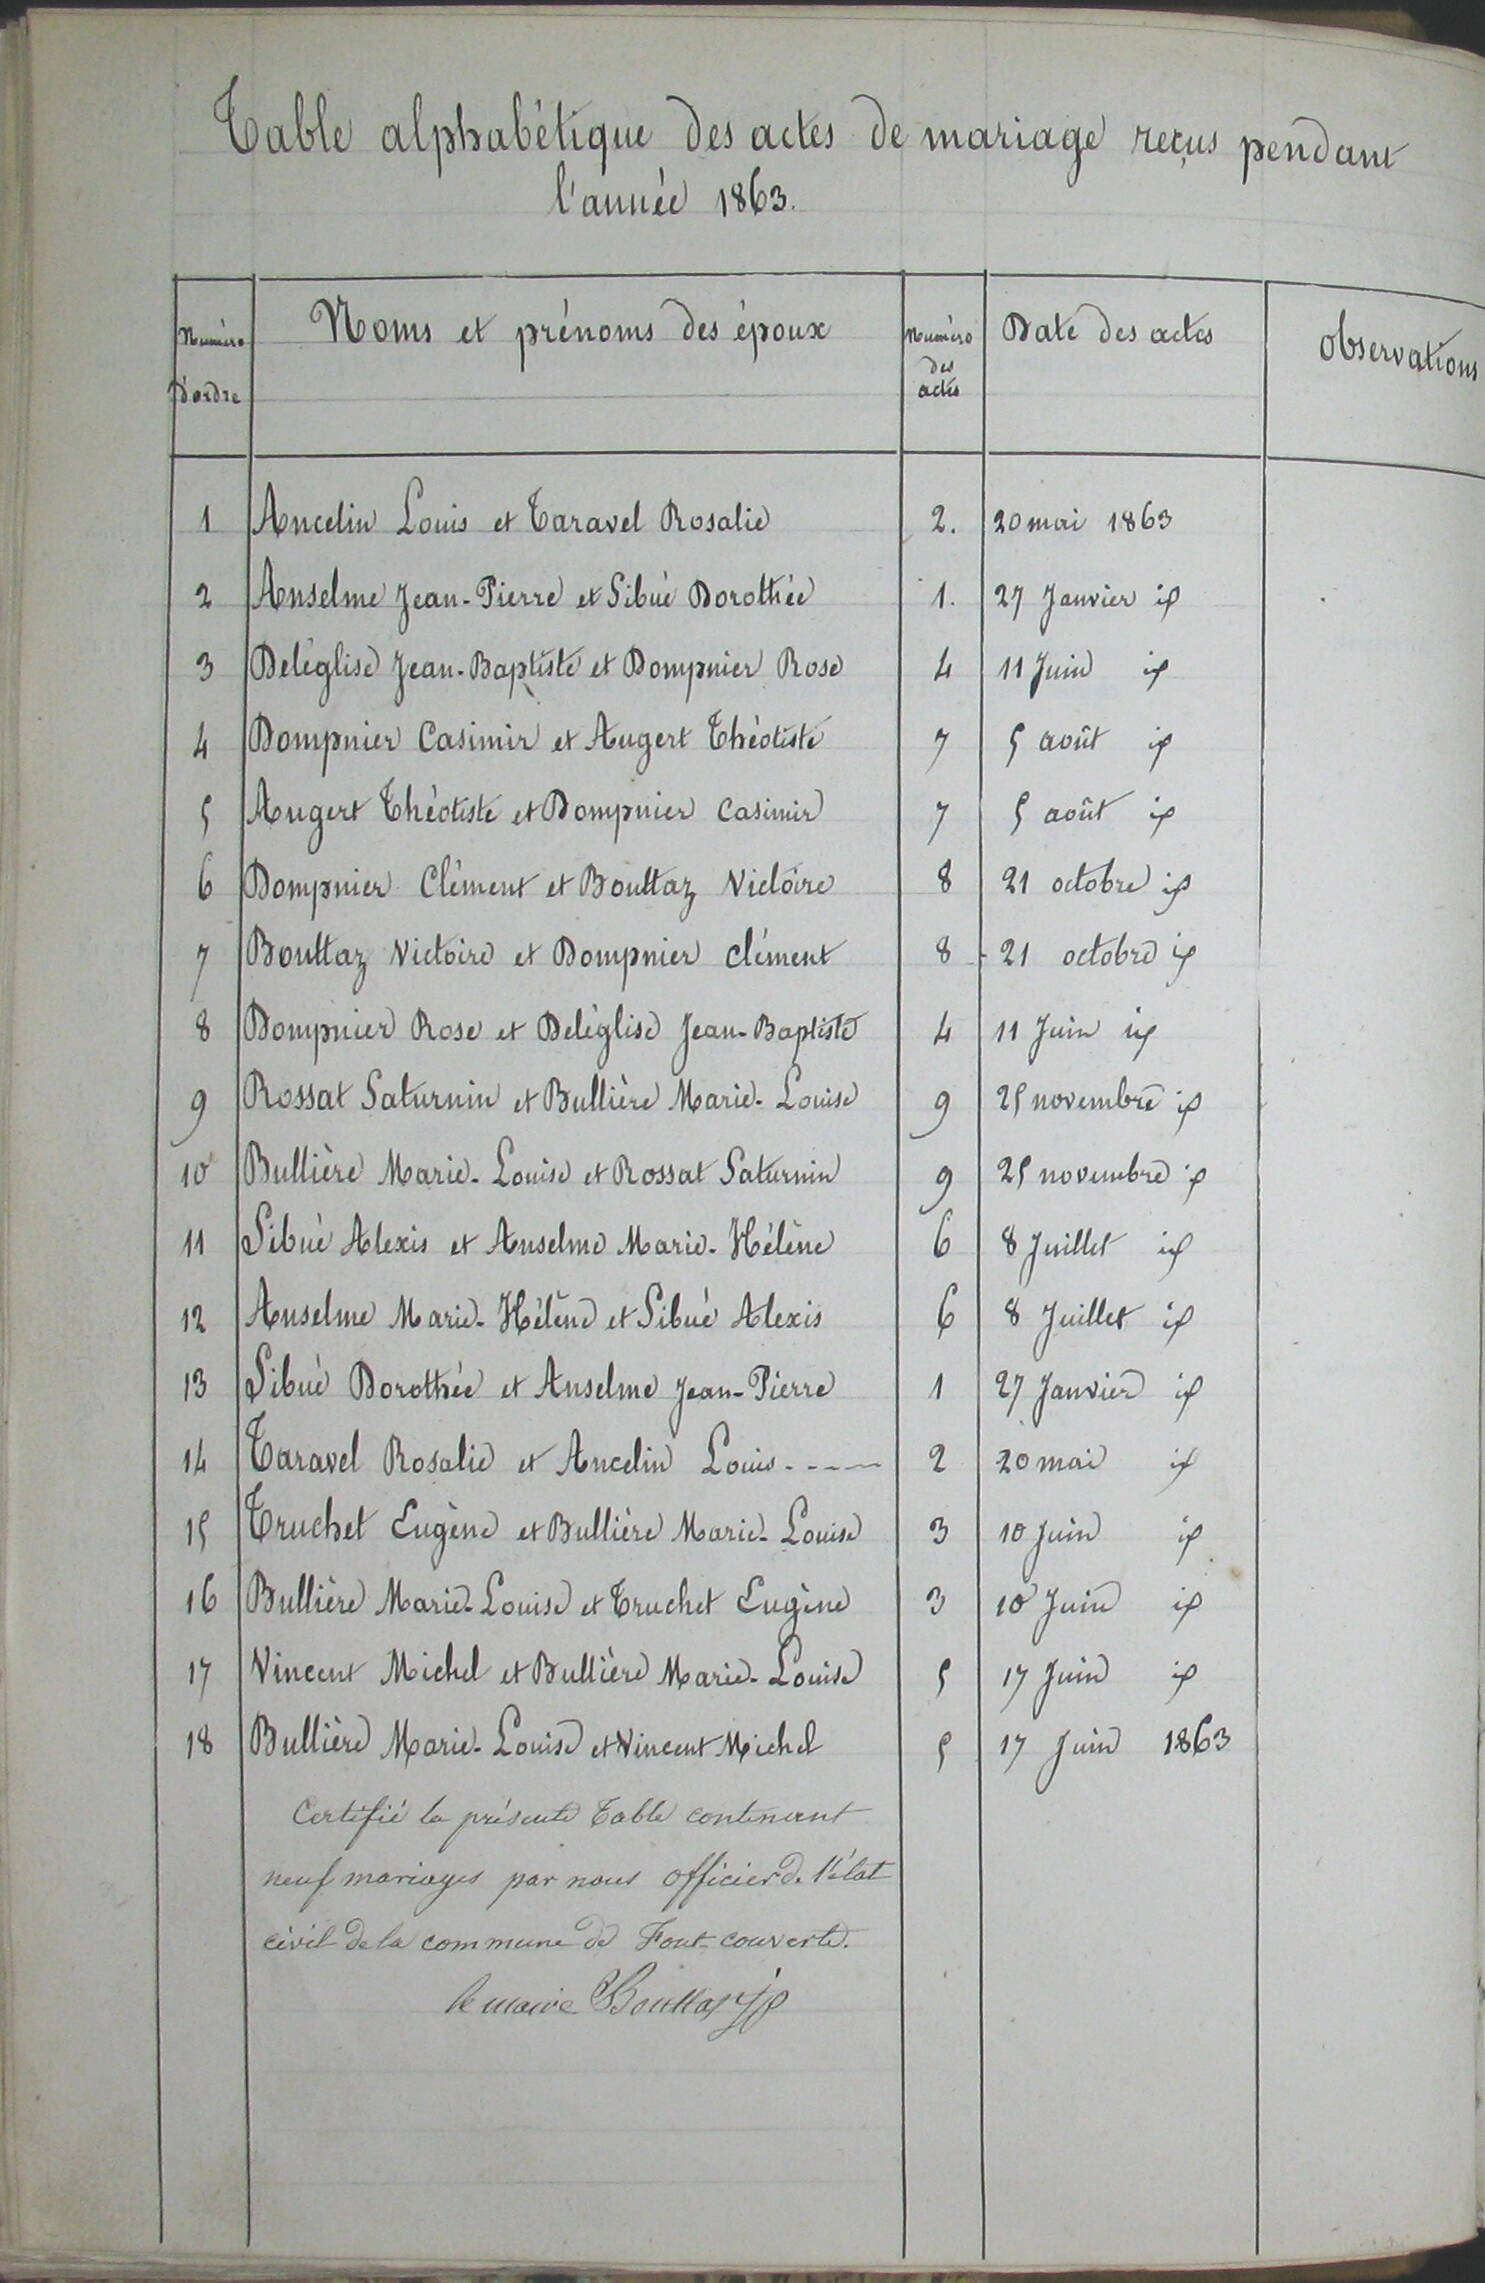 Table alphabétique des actes de mariage reçus pendant
l'année 1863.
Numéro d'ordre | Noms et prénoms des époux | Numéro des actes | Date des actes | Observations
1 Ancelin Louis et Taravel Rosalie 2. 20 mai 1863
2 Anselme Jean-Pierre et Sibué Dorothée 1. 27 Janvier id
3 Deléglise Jean-Baptiste et Dompnier Rose 4 11 Juin id
4 Dompnier Casimir et Augert Théotiste 7 5 août id
5 Augert Théotiste et Dompnier Casimir 7 5 août id
6 Dompnier Clément et Bouttaz Victoire 8 21 octobre id
7 Bouttaz Victoire et Dompnier Clément 8 21 octobre id
8 Dompnier Rose et Deléglise Jean-Baptiste 4 11 Juin id
9 Rossat Saturnin et Bullière Marie-Louise 9 25 novembre id
10 Bullière Marie-Louise et Rossat Saturnin 9 25 novembre id
11 Sibué Alexis et Anselme Marie-Hélène 6 8 Juillet id
12 Anselme Marie-Hélène et Sibué Alexis 6 8 Juillet id
13 Sibué Dorothée et Anselme Jean-Pierre 1 27 Janvier id
14 Taravel Rosalie et Ancelin Louis ----- 2 20 mai id
15 Truchet Eugène et Bullière Marie-Louise 3 10 Juin id
16 Bullière Marie-Louise et Truchet Eugène 3 10 Juin id
17 Vincent Michel et Bullière Marie-Louise 5 17 Juin id
18 Bullière Marie-Louise et Vincent Michel 5 17 Juin 1863
Certifié la présente Table contenant
neuf mariages par nous officier de l'état
civil de la commune de Font-couverte.
le maire Bouttaz